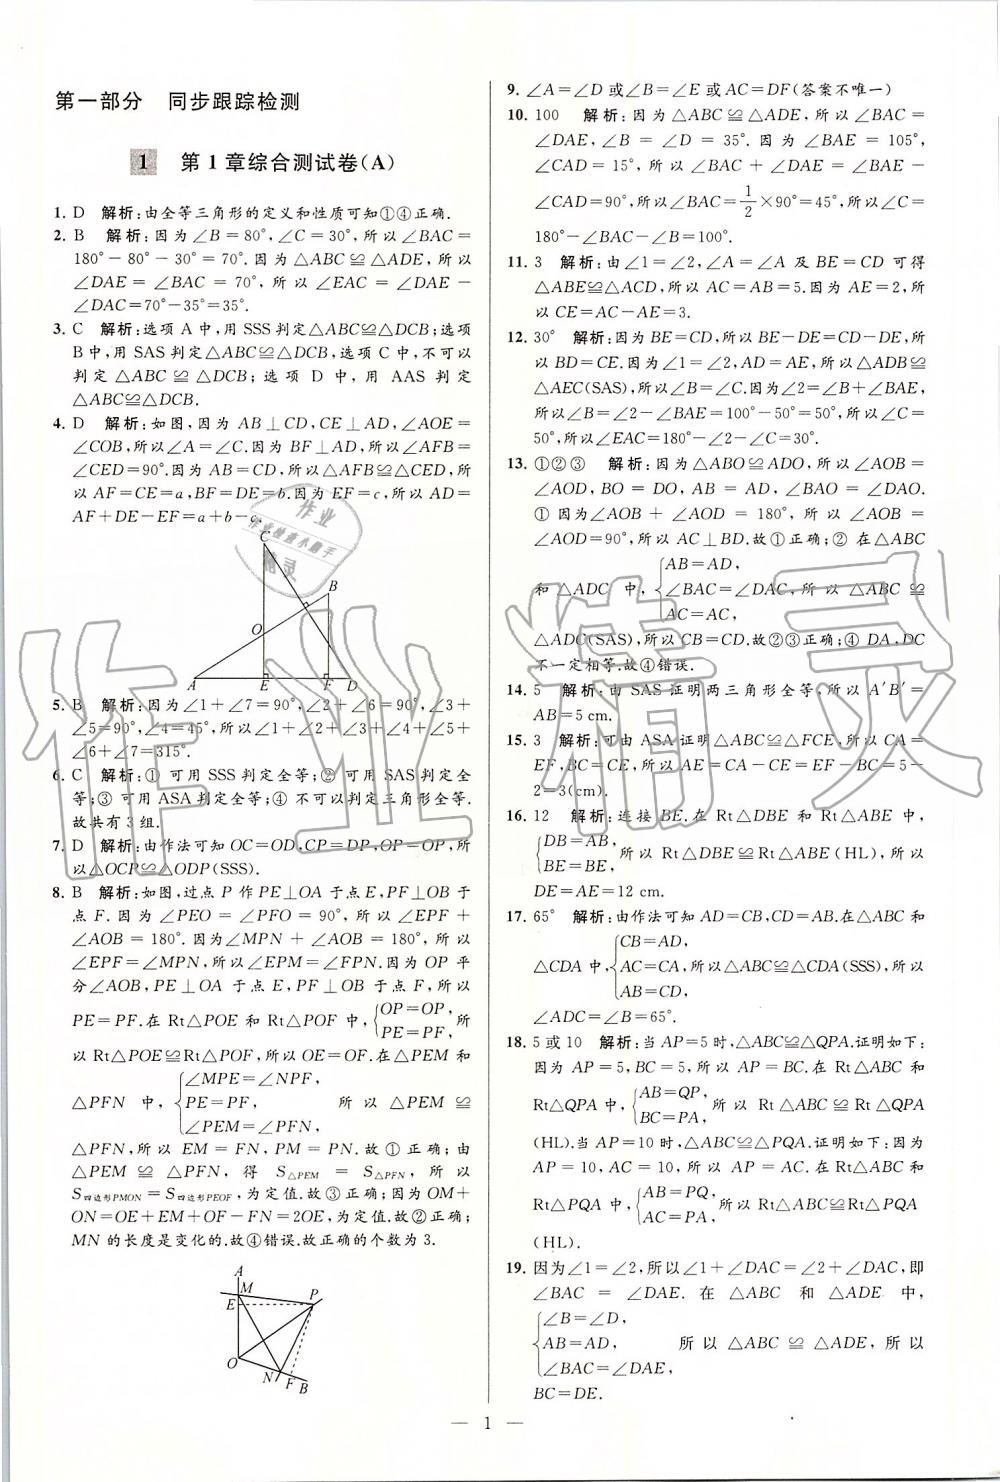 第一部分 同步跟踪检测
1 第1章综合测试卷(A)
1. D 解析:由全等三角形的定义和性质可知①④正确.
2. B 解析:因为∠B=80°,∠C=30°,所以∠BAC=
180°-80°-30°=70°.因为△ABC≌△ADE,所以
∠DAE=∠BAC=70°,所以∠EAC=∠DAE-
∠DAC=70°-35°=35°.
3. C 解析:选项A中,用SSS判定△ABC≌△DCB;选项
B中,用SAS判定△ABC≌△DCB,选项C中,不可以
判定△ABC≌△DCB;选项D中,用AAS判定
△ABC≌△DCB.
4. D 解析:如图,因为AB⊥CD,CE⊥AD,∠AOE=
∠COB,所以∠A=∠C.因为BF⊥AD,所以∠AFB=
∠CED=90°.因为AB=CD,所以△AFB≌△CED,所
以AF=CE=a,BF=DE=b.因为EF=c,所以AD=
AF+DE-EF=a+b-c.
C
B
O
A E F D
5. B 解析:因为∠1+∠7=90°,∠2+∠6=90°,∠3+
∠5=90°,∠4=45°,所以∠1+∠2+∠3+∠4+∠5+
∠6+∠7=315°.
6. C 解析:①可用SSS判定全等;②可用SAS判定全
等;③可用ASA判定全等;④不可以判定三角形全等.
故共有3组.
7. D 解析:由作法可知OC=OD,CP=DP,OP=OP,所
以△OCP≌△ODP(SSS).
8. B 解析:如图,过点P作PE⊥OA于点E,PF⊥OB于
点F.因为∠PEO=∠PFO=90°,所以∠EPF+
∠AOB=180°.因为∠MPN+∠AOB=180°,所以
∠EPF=∠MPN,所以∠EPM=∠FPN.因为OP平
分∠AOB,PE⊥OA于点E,PF⊥OB于点F,所以
PE=PF.在Rt△POE和Rt△POF中,{OP=OP, PE=PF,所
以Rt△POE≌Rt△POF,所以OE=OF.在△PEM和
△PFN中,{∠MPE=∠NPF, PE=PF, ∠PEM=∠PFN,所以△PEM≌
△PFN,所以EM=FN,PM=PN.故①正确;由
△PEM≌△PFN,得S△PEM=S△PFN,所以
S四边形PMON=S四边形PEOF,为定值.故③正确;因为OM+
ON=OE+EM+OF-FN=2OE,为定值.故②正确;
MN的长度是变化的.故④错误.故正确的个数为3.
A
M
E P
O
N F B
9. ∠A=∠D或∠B=∠E或AC=DF(答案不唯一)
10. 100 解析:因为△ABC≌△ADE,所以∠BAC=
∠DAE,∠B=∠D=35°.因为∠BAE=105°,
∠CAD=15°,所以∠BAC+∠DAE=∠BAE-
∠CAD=90°,所以∠BAC=1/2×90°=45°,所以∠C=
180°-∠BAC-∠B=100°.
11. 3 解析:由∠1=∠2,∠A=∠A及BE=CD可得
△ABE≌△ACD,所以AC=AB=5.因为AE=2,所
以CE=AC-AE=3.
12. 30° 解析:因为BE=CD,所以BE-DE=CD-DE,所
以BD=CE.因为∠1=∠2,AD=AE,所以△ADB≌
△AEC(SAS),所以∠B=∠C.因为∠2=∠B+∠BAE,
所以∠B=∠2-∠BAE=100°-50°=50°,所以∠C=
50°,所以∠EAC=180°-∠2-∠C=30°.
13. ①②③ 解析:因为△ABO≌△ADO,所以∠AOB=
∠AOD,BO=DO,AB=AD,∠BAO=∠DAO.
①因为∠AOB+∠AOD=180°,所以∠AOB=
∠AOD=90°,所以AC⊥BD.故①正确;②在△ABC
和△ADC中,{AB=AD, ∠BAC=∠DAC, AC=AC,所以△ABC≌
△ADC(SAS),所以CB=CD.故②③正确;④DA,DC
不一定相等.故④错误.
14. 5 解析:由SAS证明两三角形全等,所以A′B′=
AB=5 cm.
15. 3 解析:可由ASA证明△ABC≌△FCE,所以CA=
EF,所以AE=CA-CE=EF-BC=5-
2=3(cm).
16. 12 解析:连接BE.在Rt△DBE和Rt△ABE中,
{DB=AB, BE=BE,所以Rt△DBE≌Rt△ABE(HL),所以
DE=AE=12 cm.
17. 65° 解析:由作法可知AD=CB,CD=AB.在△ABC和
△CDA中,{CB=AD, AC=CA, AB=CD,所以△ABC≌△CDA(SSS),所以
∠ADC=∠B=65°.
18. 5或10 解析:当AP=5时,△ABC≌△QPA.证明如下:
因为AP=5,BC=5,所以AP=BC.在Rt△ABC和
Rt△QPA中,{AB=QP, BC=PA,所以Rt△ABC≌Rt△QPA
(HL).当AP=10时,△ABC≌△PQA.证明如下:因为
AP=10,AC=10,所以AP=AC.在Rt△ABC和
Rt△PQA中,{AB=PQ, AC=PA,所以Rt△ABC≌Rt△PQA
(HL).
19. 因为∠1=∠2,所以∠1+∠DAC=∠2+∠DAC,即
∠BAC=∠DAE.在△ABC和△ADE中,
{∠B=∠D, AB=AD, ∠BAC=∠DAE,所以△ABC≌△ADE,所以
BC=DE.
— 1 —
作业精灵
作业
作业检查小助手
精灵